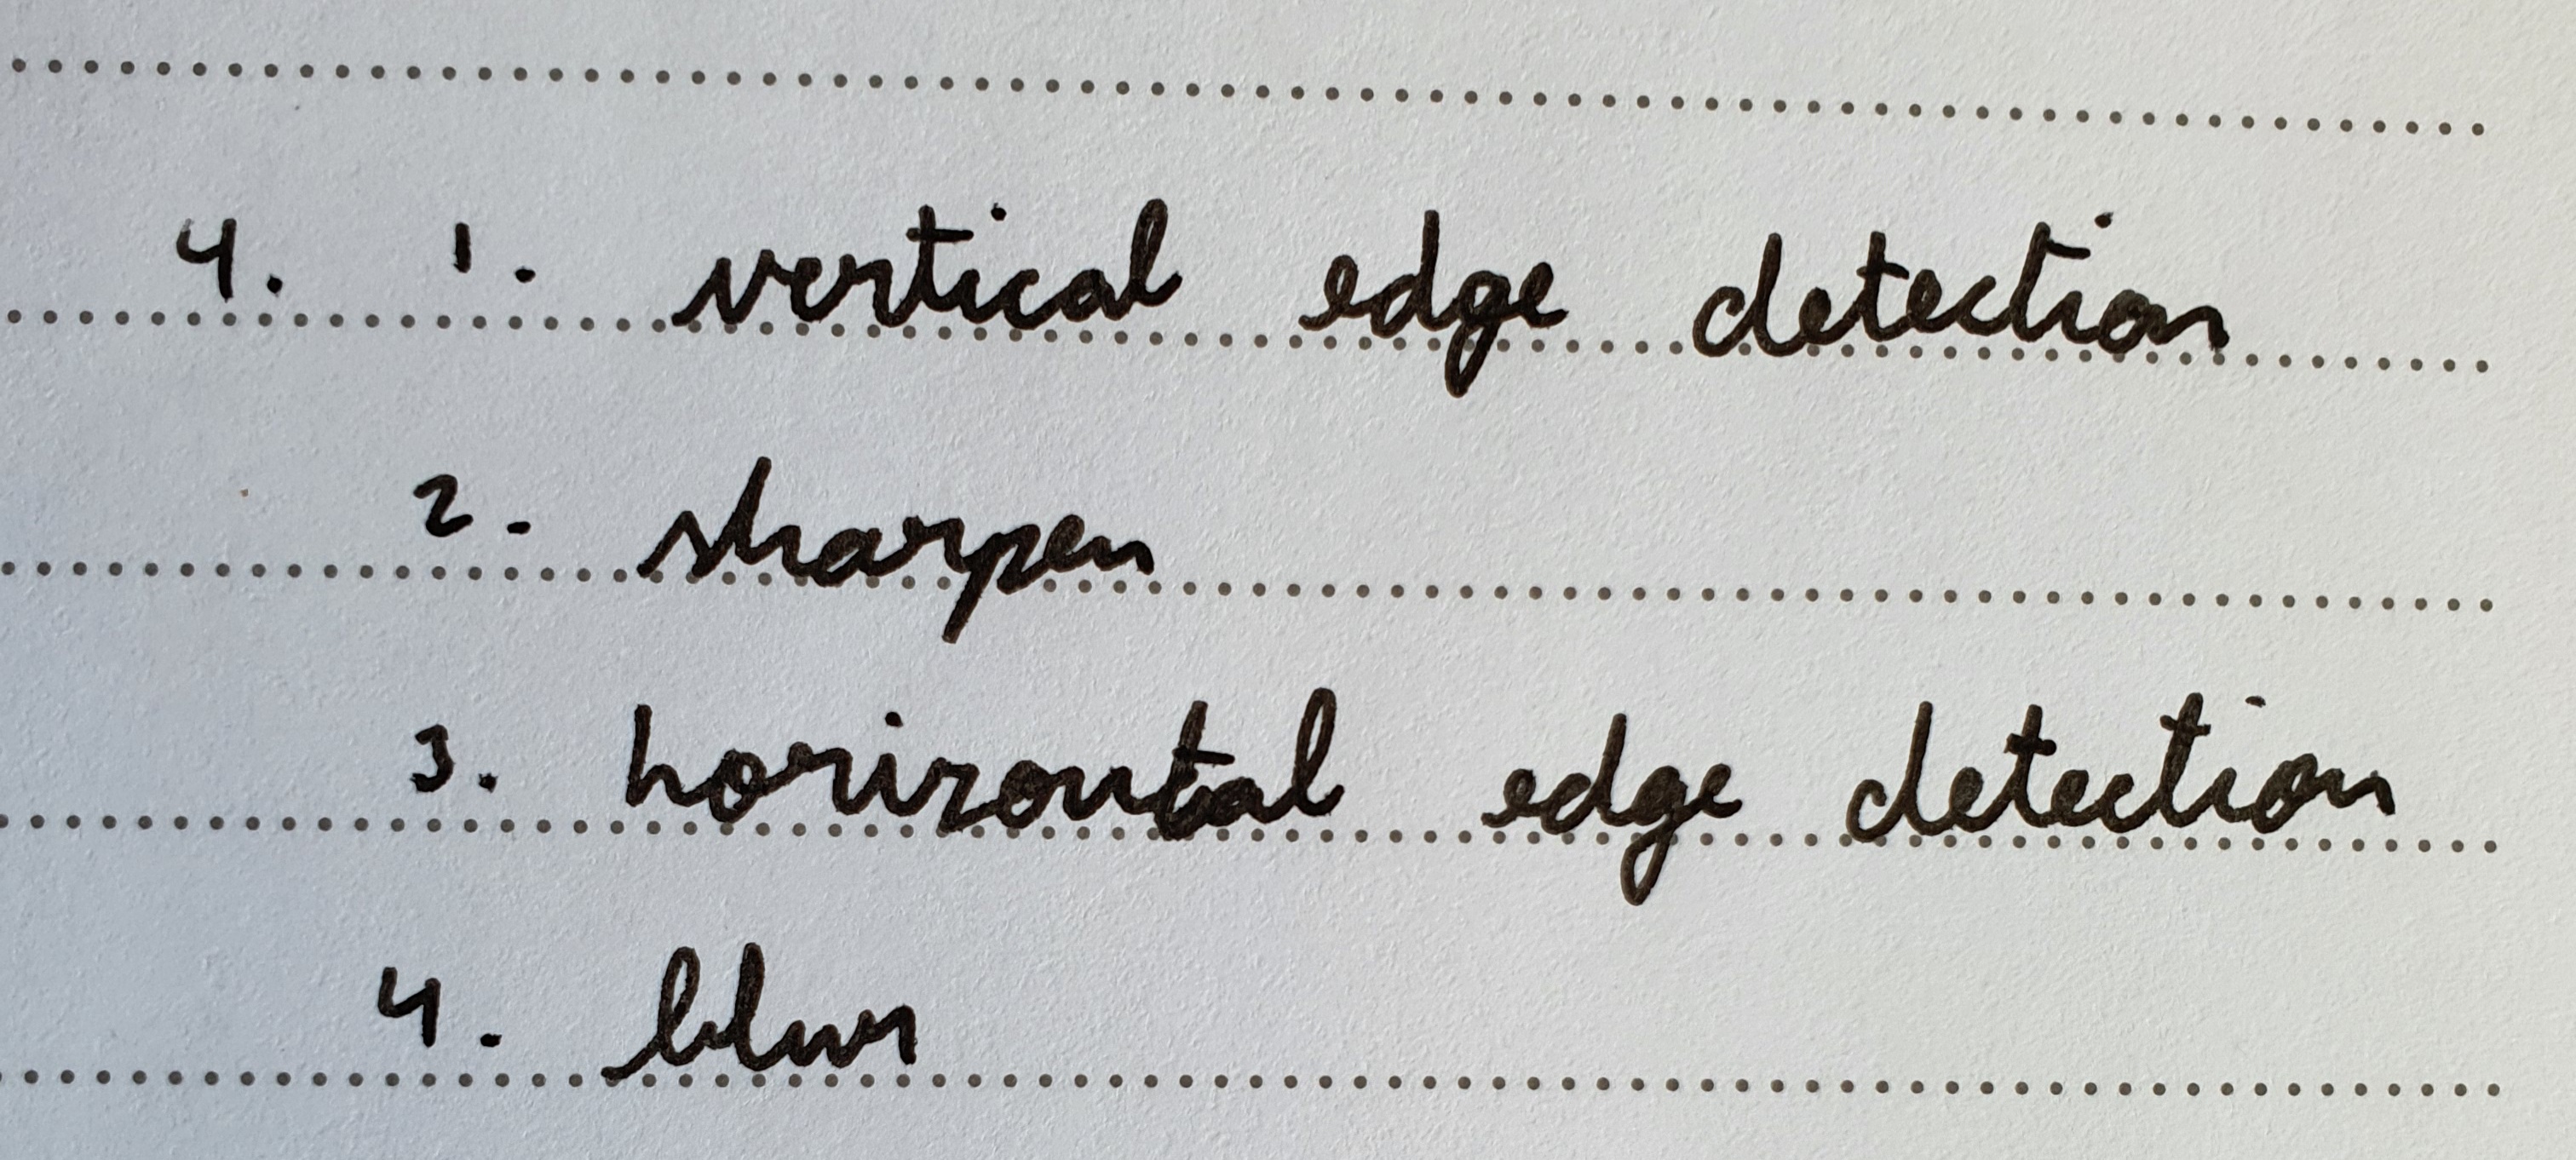 4. 1. vertical edge detection
2. sharpen
3. horizontal edge detection
4. blur